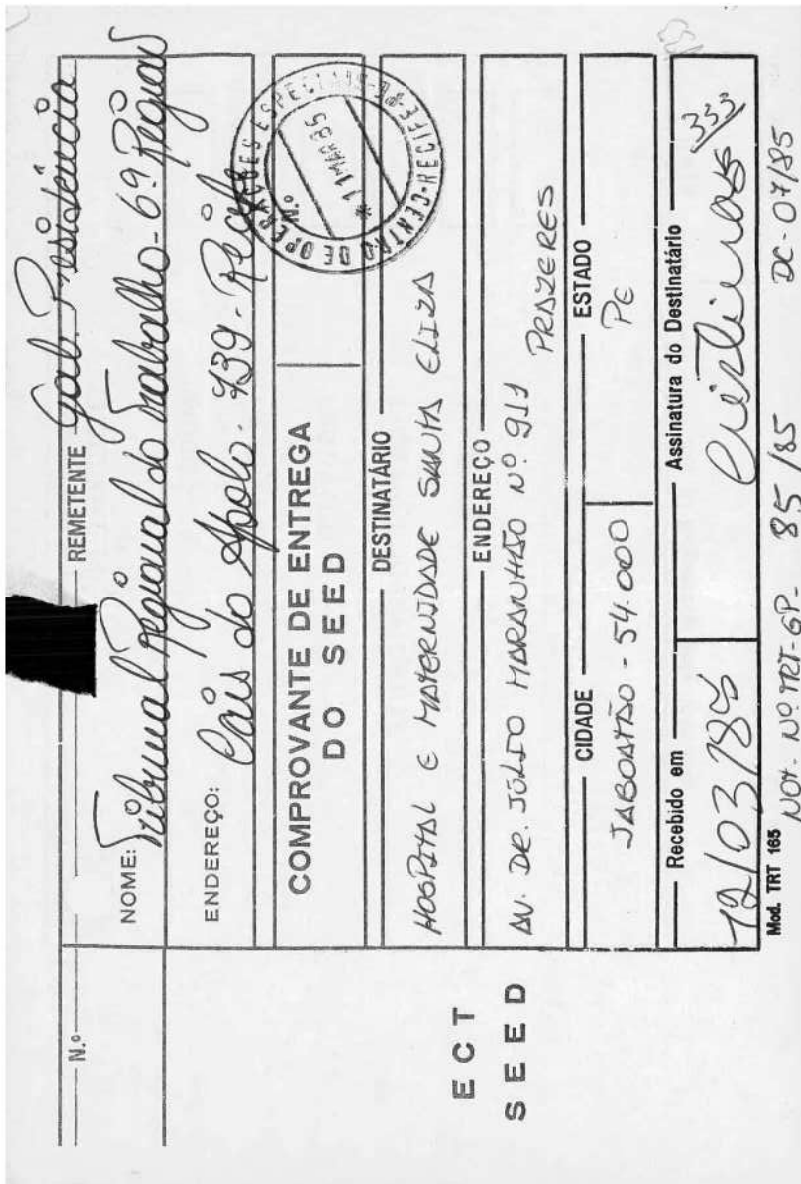 N.º
REMETENTE Gab. Presidência
NOME: Tribunal Regional do Trabalho - 6ª Região
ENDEREÇO: Cais do Apolo - 739 - Recife
COMPROVANTE DE ENTREGA
DO SEED
N.º
CENTRO DE OPERAÇÕES ESPECIAIS
11 MAR 85
RECIFE
ECT
SEED
DESTINATÁRIO
HOSPITAL E MATERNIDADE SANTA ELIZA
ENDEREÇO
AV. DR. JÚLIO MARANHÃO Nº 911 PRAZERES
CIDADE ESTADO
JABOATÃO - 54.000 PE
Recebido em Assinatura do Destinatário
12/03/85
333
Mod. TRT 165
NOT. Nº TRT-GP- 85/85 DC-07/85